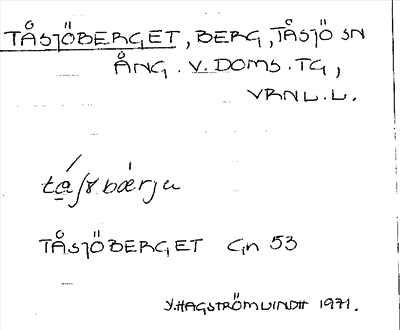 TÅSJÖBERGET, BERG, TÅSJÖ SN
ÅNG. V. DOMS. TG,
VRNL.L.
bærju
TÅSJÖBERGET Gn 53
Y. HAGSTRÖM 1971.